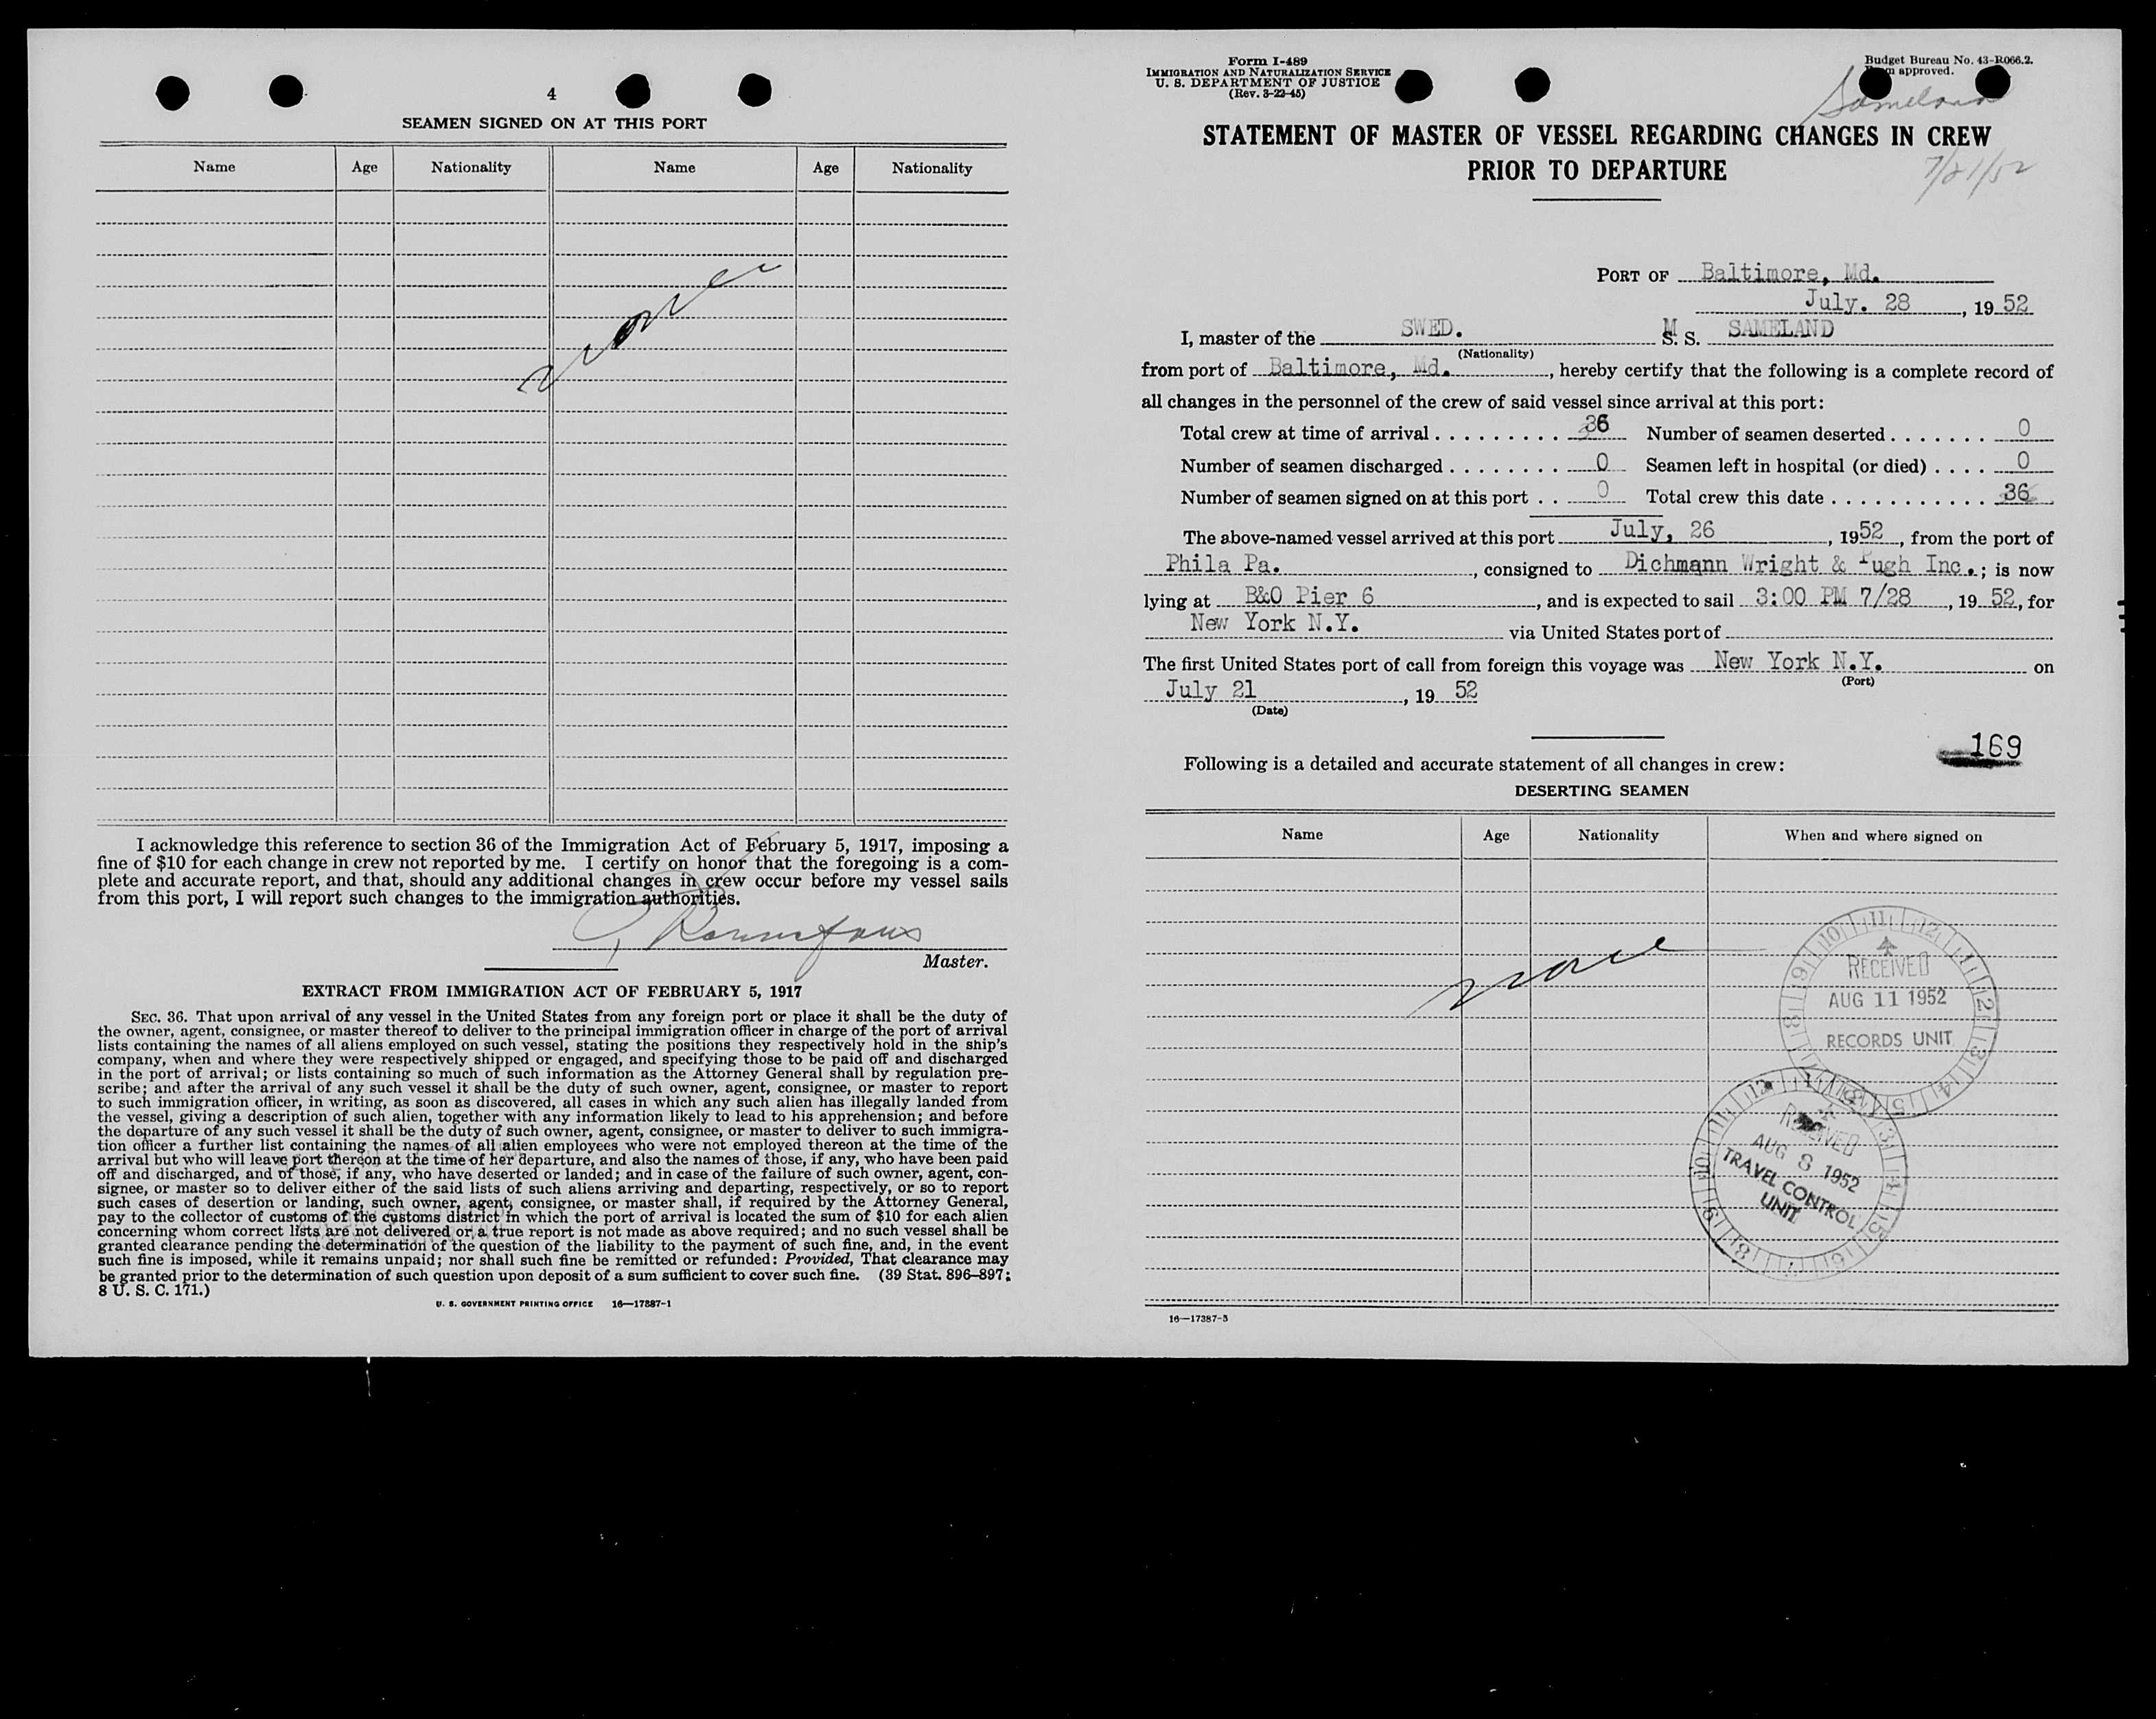 4
SEAMEN SIGNED ON AT THIS PORT
Name Age Nationality Name Age Nationality
none
I acknowledge this reference to section 36 of the Immigration Act of February 5, 1917, imposing a
fine of $10 for each change in crew not reported by me. I certify on honor that the foregoing is a com-
plete and accurate report, and that, should any additional changes in crew occur before my vessel sails
from this port, I will report such changes to the immigration authorities.
Master.
EXTRACT FROM IMMIGRATION ACT OF FEBRUARY 5, 1917
SEC. 36. That upon arrival of any vessel in the United States from any foreign port or place it shall be the duty of
the owner, agent, consignee, or master thereof to deliver to the principal immigration officer in charge of the port of arrival
lists containing the names of all aliens employed on such vessel, stating the positions they respectively hold in the ship's
company, when and where they were respectively shipped or engaged, and specifying those to be paid off and discharged
in the port of arrival; or lists containing so much of such information as the Attorney General shall by regulation pre-
scribe; and after the arrival of any such vessel it shall be the duty of such owner, agent, consignee, or master to report
to such immigration officer, in writing, as soon as discovered, all cases in which any such alien has illegally landed from
the vessel, giving a description of such alien, together with any information likely to lead to his apprehension; and before
the departure of any such vessel it shall be the duty of such owner, agent, consignee, or master to deliver to such immigra-
tion officer a further list containing the names of all alien employees who were not employed thereon at the time of the
arrival but who will leave port thereon at the time of her departure, and also the names of those, if any, who have been paid
off and discharged, and of those, if any, who have deserted or landed; and in case of the failure of such owner, agent, con-
signee, or master so to deliver either of the said lists of such aliens arriving and departing, respectively, or so to report
such cases of desertion or landing, such owner, agent, consignee, or master shall, if required by the Attorney General,
pay to the collector of customs of the customs district in which the port of arrival is located the sum of $10 for each alien
concerning whom correct lists are not delivered or a true report is not made as above required; and no such vessel shall be
granted clearance pending the determination of the question of the liability to the payment of such fine, and, in the event
such fine is imposed, while it remains unpaid; nor shall such fine be remitted or refunded: Provided, That clearance may
be granted prior to the determination of such question upon deposit of a sum sufficient to cover such fine. (39 Stat. 896–897;
8 U. S. C. 171.)
U. S. GOVERNMENT PRINTING OFFICE 16—17387-1
Form I-489
IMMIGRATION AND NATURALIZATION SERVICE
U. S. DEPARTMENT OF JUSTICE
(Rev. 3-22-45)
Budget Bureau No. 43-R066.2.
approved.
Sameland
STATEMENT OF MASTER OF VESSEL REGARDING CHANGES IN CREW
PRIOR TO DEPARTURE
7/21/52
PORT OF Baltimore, Md.
July. 28, 19 52
I, master of the SWED. M S. S. SAMELAND
(Nationality)
from port of Baltimore, Md., hereby certify that the following is a complete record of
all changes in the personnel of the crew of said vessel since arrival at this port:
Total crew at time of arrival . . . . . . . . . 36 Number of seamen deserted . . . . . . . 0
Number of seamen discharged . . . . . . . . 0 Seamen left in hospital (or died) . . . . 0
Number of seamen signed on at this port . . 0 Total crew this date . . . . . . . . . . . . 36
The above-named vessel arrived at this port July, 26, 1952, from the port of
Phila Pa., consigned to Dichmann Wright & Pugh Inc.; is now
lying at B&O Pier 6, and is expected to sail 3:00 PM 7/28, 19 52, for
New York N.Y. via United States port of
The first United States port of call from foreign this voyage was New York N.Y. on
(Port)
July 21, 19 52
(Date)
169
Following is a detailed and accurate statement of all changes in crew:
DESERTING SEAMEN
Name Age Nationality When and where signed on
none
RECEIVED
AUG 11 1952
RECORDS UNIT
RECEIVED
AUG 8 1952
TRAVEL CONTROL
UNIT
16—17387-3